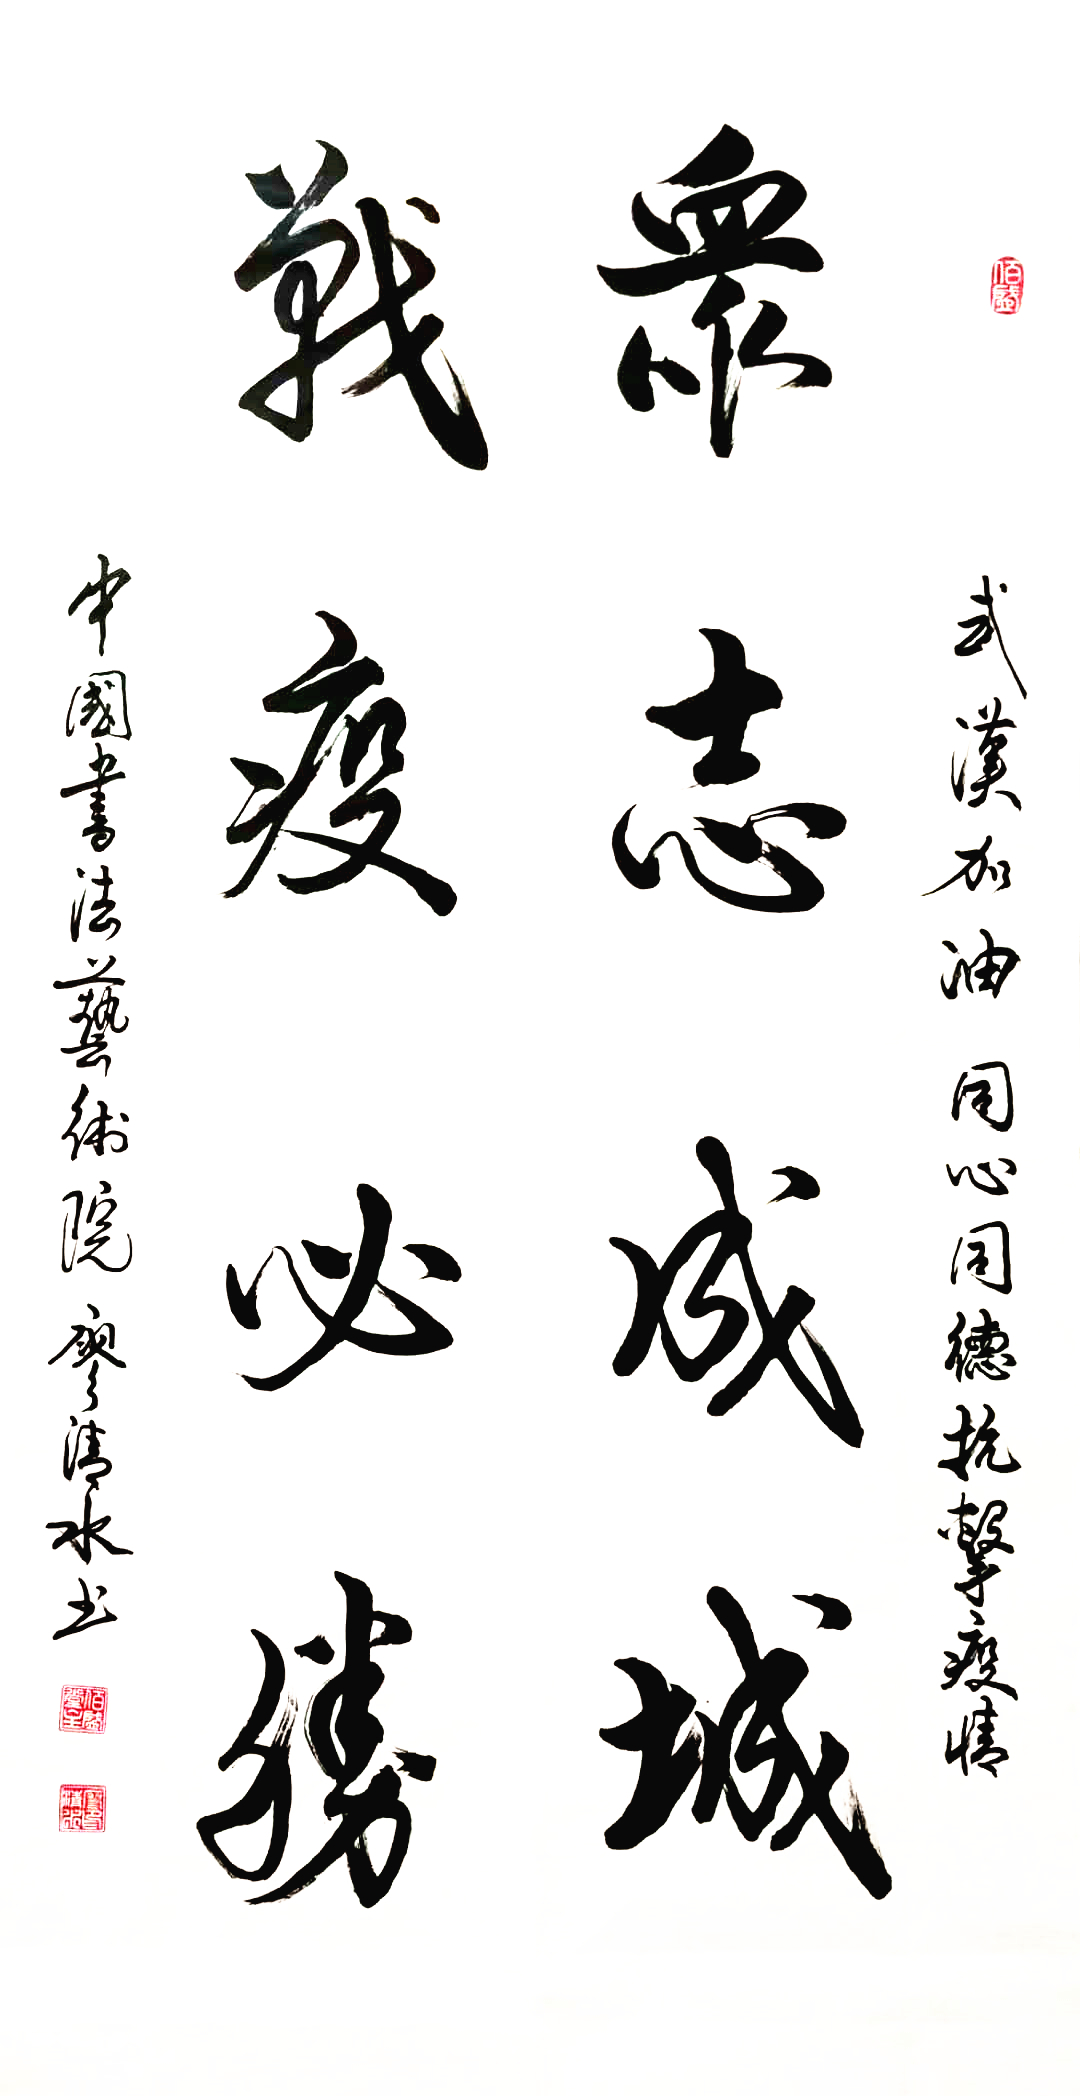 武漢加油 同心同德抗擊疫情
眾志成城
戰疫必勝
中國書法藝術院 廖清水书